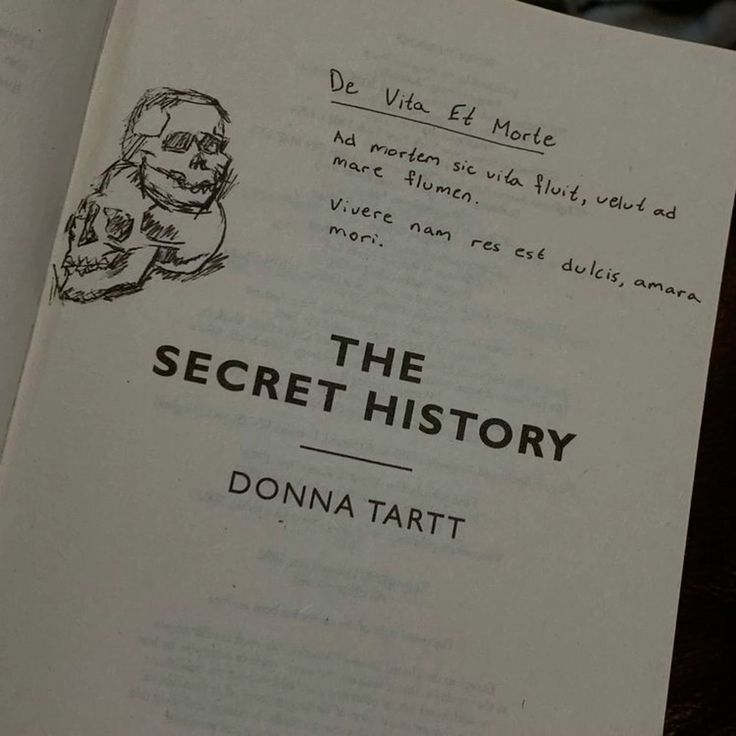 De Vita Et Morte
Ad mortem sic vita fluit, velut ad
mare flumen.
Vivere nam res est dulcis, amara
mori.
THE
SECRET HISTORY
DONNA TARTT